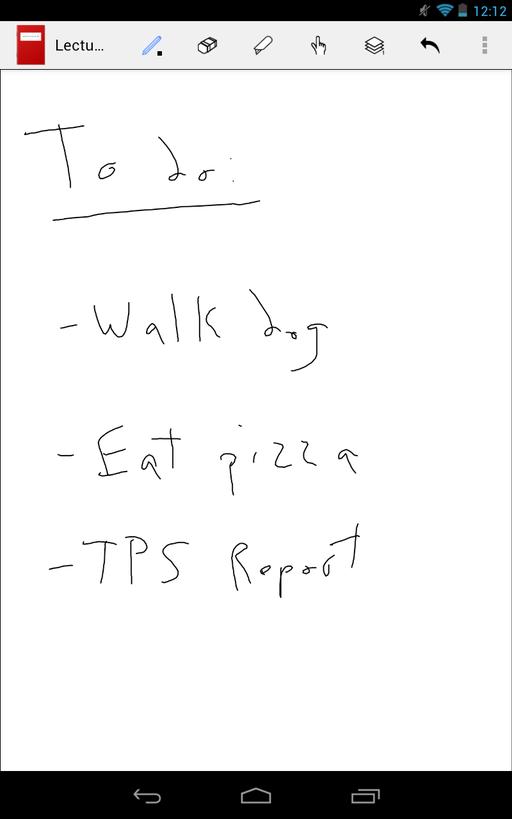 12:12
Lectu...
To do:
- Walk dog
- Eat pizza
- TPS Report